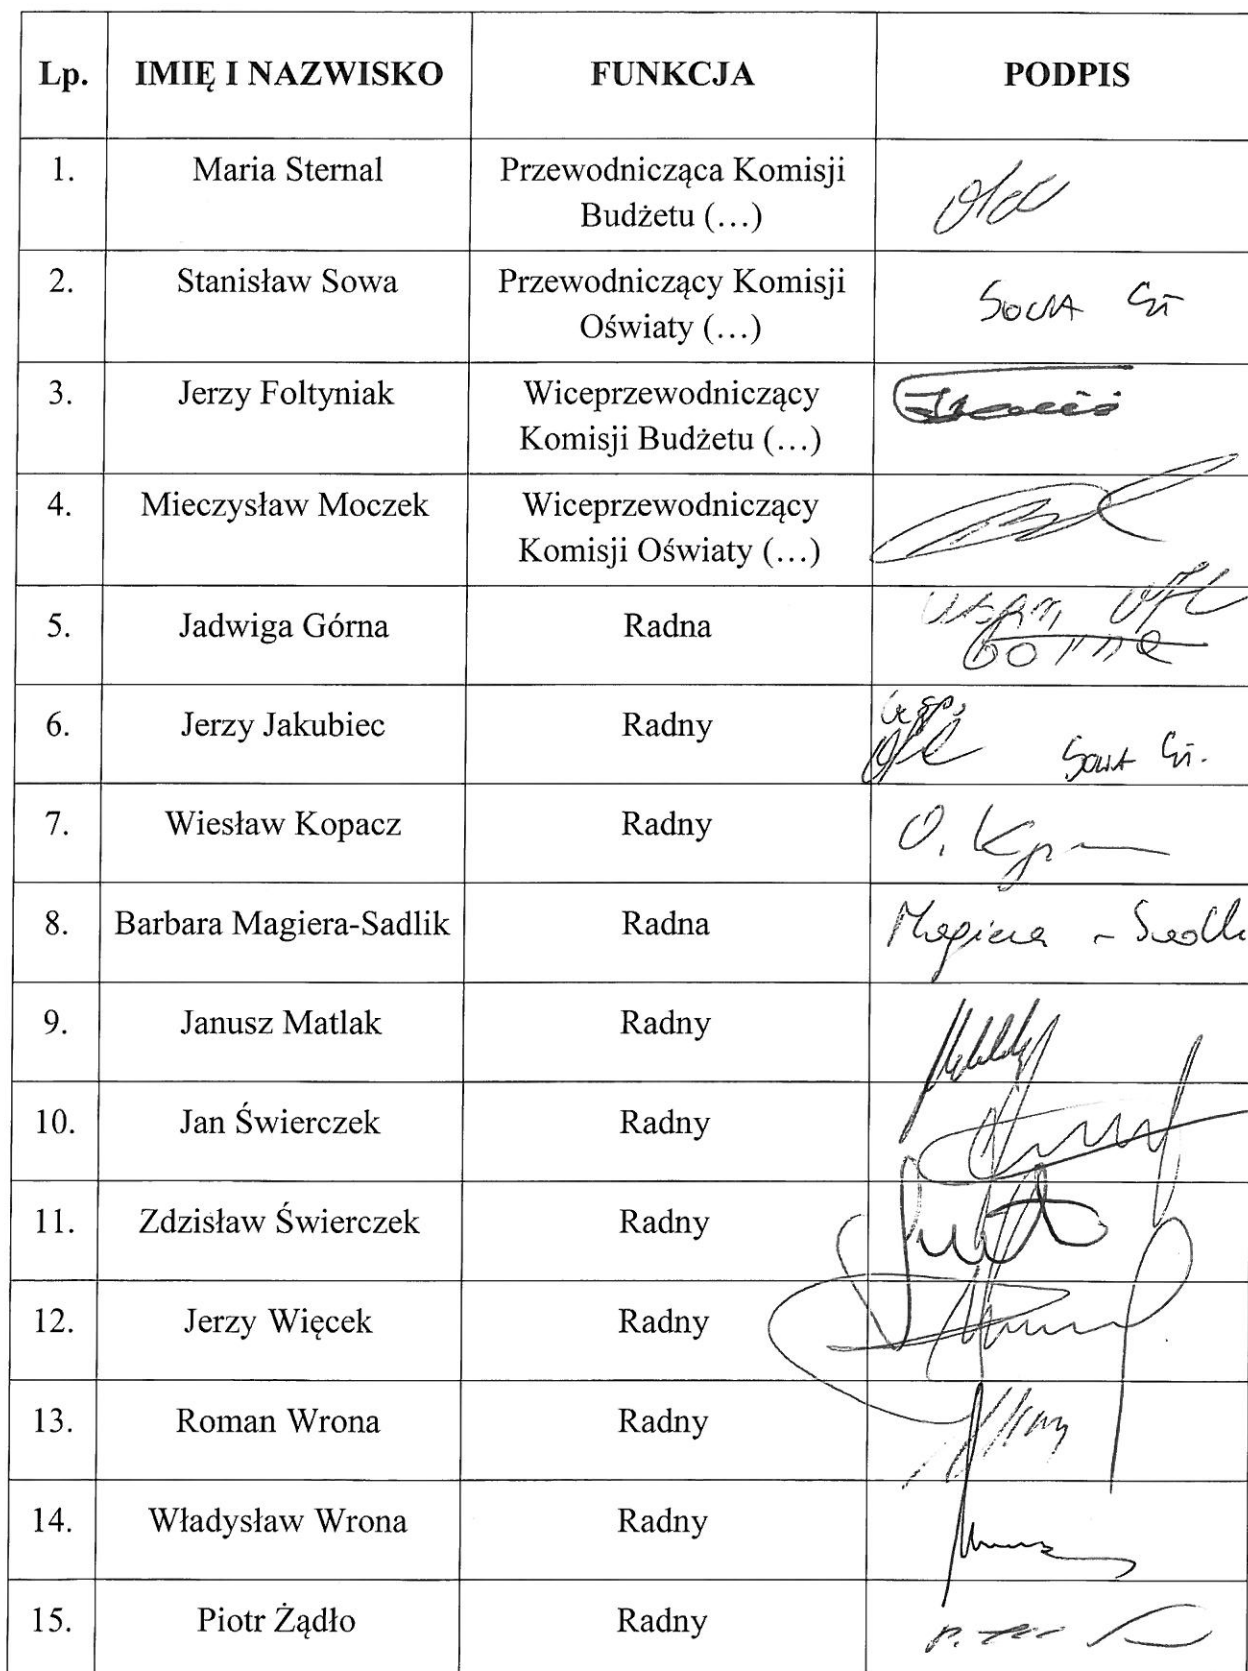 Lp. IMIĘ I NAZWISKO FUNKCJA PODPIS
1. Maria Sternal Przewodnicząca Komisji
Budżetu (…)
2. Stanisław Sowa Przewodniczący Komisji
Oświaty (…)
3. Jerzy Foltyniak Wiceprzewodniczący
Komisji Budżetu (…)
4. Mieczysław Moczek Wiceprzewodniczący
Komisji Oświaty (…)
5. Jadwiga Górna Radna
6. Jerzy Jakubiec Radny Sowa St.
7. Wiesław Kopacz Radny
8. Barbara Magiera-Sadlik Radna Magiera -
9. Janusz Matlak Radny
10. Jan Świerczek Radny
11. Zdzisław Świerczek Radny
12. Jerzy Więcek Radny
13. Roman Wrona Radny
14. Władysław Wrona Radny
15. Piotr Żądło Radny